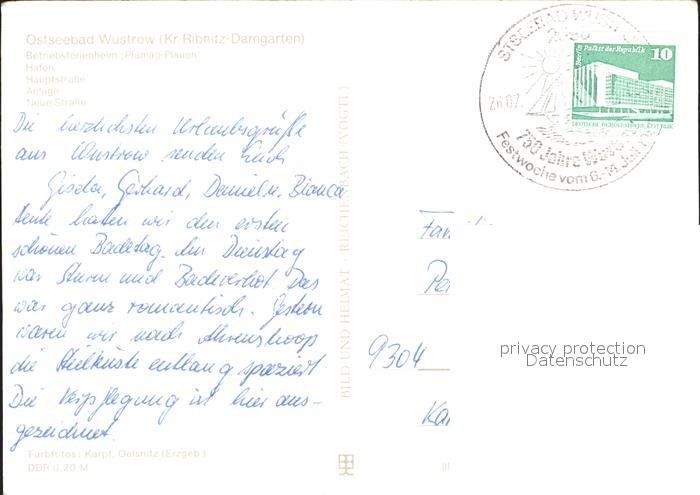 Ostseebad Wustrow (Kr Ribnitz-Damgarten)
Betriebsferienheim „Plamag-Plauen"
Hafen
Hauptstraße
Anlage
Neue Straße
Die herzlichsten Urlaubsgrüße
aus Wustrow senden Euch
Gisela, Gerhard, Daniel u. Bianca
Heute hatten wir den ersten
schönen Badetag. Am Dienstag
war Sturm und Badeverbot. Das
war ganz romantisch. Gestern
waren wir nach Ahrenshoop
die Steilküste entlang spaziert.
Die Verpflegung ist hier aus-
gezeichnet.
Farbfotos: Karpf, Oelsnitz (Erzgeb.)
DDR 0,20 M
BILD UND HEIMAT REICHENBACH (VOGTL)
OSTSEEBAD WUSTROW
26.07.
750 Jahre Wustrow
Festwoche vom 6.-14. Juli
Berlin Palast der Republik
10
DEUTSCHE DEMOKRATISCHE REPUBLIK
9304
privacy protection
Datenschutz